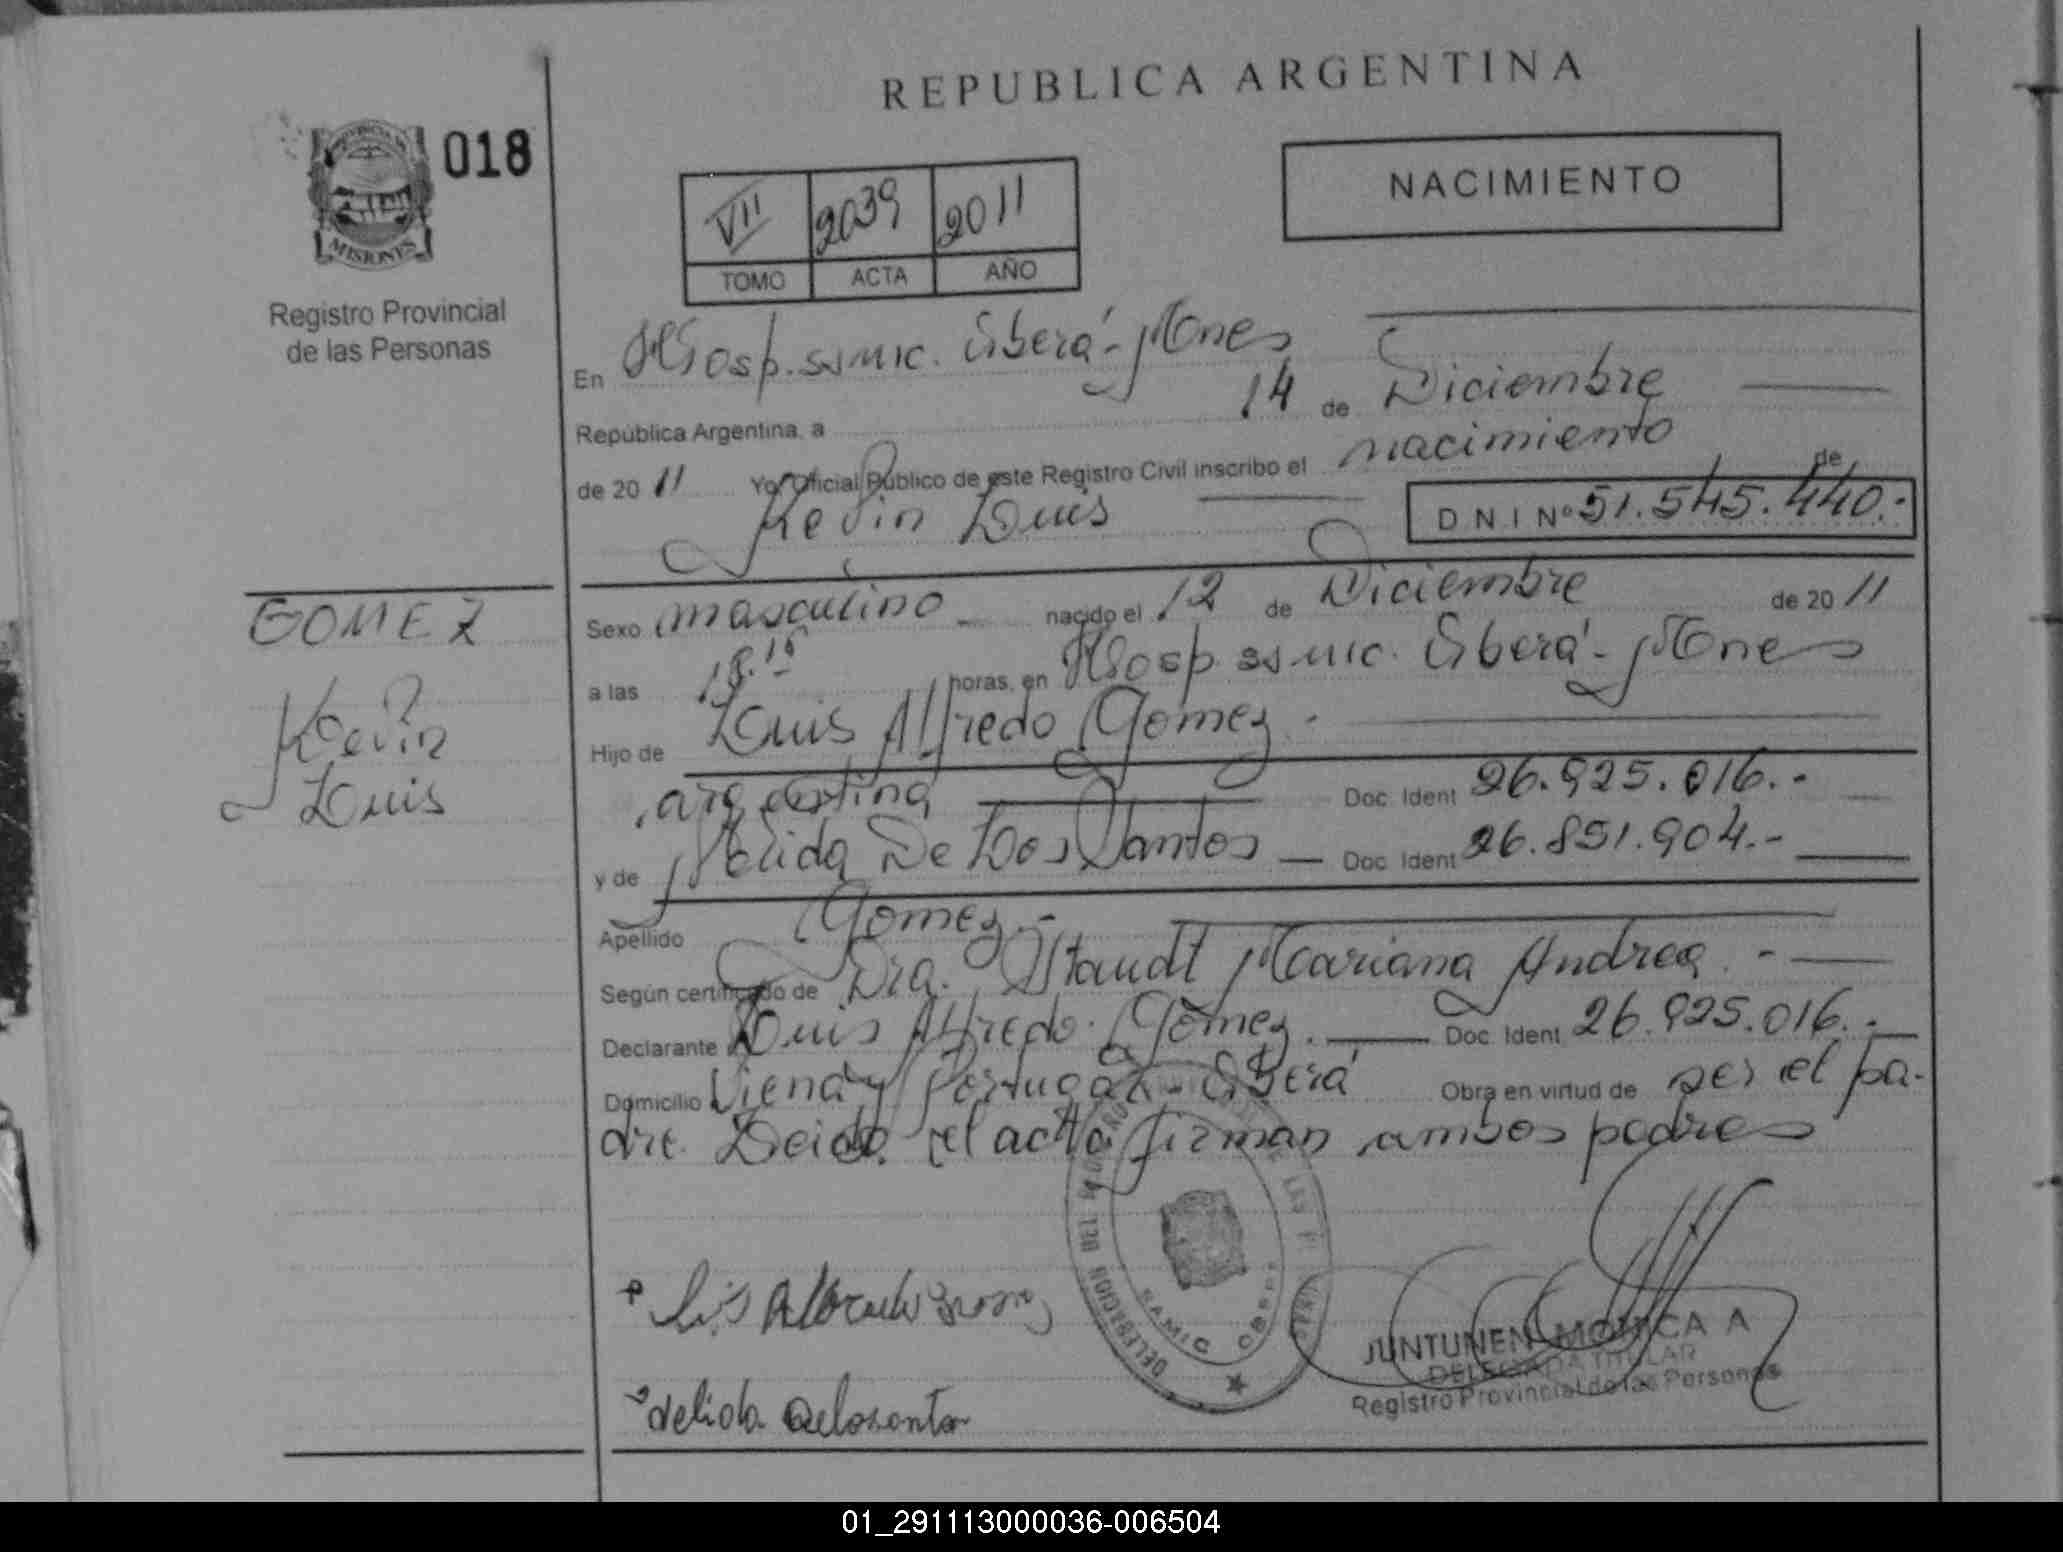 REPUBLICA ARGENTINA
018
MISIONES
Registro Provincial
de las Personas
VII 2039 2011
TOMO ACTA AÑO
NACIMIENTO
En Hosp. SAMIC. Oberá - Mnes
República Argentina, a 14 de Diciembre
de 20 11 Yo Oficial Público de este Registro Civil inscribo el nacimiento de
Kevin Luis
D N I Nº 51.545.440.-
GOMEZ
Kevin
Luis
Sexo masculino nacido el 12 de Diciembre de 20 11
a las 18.15 horas, en Hosp. SAMIC. Oberá - Mnes
Hijo de Luis Alfredo Gomez.
argentina Doc. Ident 26.925.016.-
y de Nelida De Los Santos Doc. Ident 26.851.904.-
Apellido Gomez.-
Según certificado de Dra. Staudt Mariana Andrea.-
Declarante Luis Alfredo Gomez. Doc. Ident 26.925.016.-
Domicilio Viena y Portugal - Oberá Obra en virtud de ser el pa-
dre. Leida el acta firman ambos padres
DELEGACION DEL
SAMIC OBERA
JUNTUNEN MONICA A
DELEGADA TITULAR
Registro Provincial de las Personas
Nelida Delosanto
01_291113000036-006504